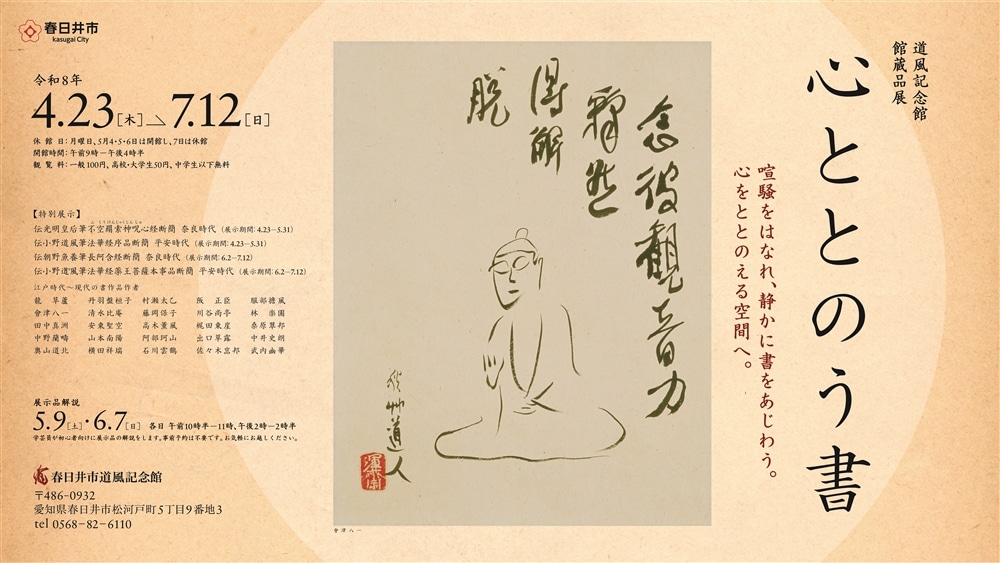 春日井市
kasugai City
令和8年
4.23[木]→7.12[日]
休館日：月曜日、5月4・5・6日は開館し、7日は休館
開館時間：午前9時ー午後4時半
観覧料：一般100円、高校・大学生50円、中学生以下無料
【特別展示】
伝光明皇后筆不空羂索神呪心経断簡 奈良時代（展示期間：4.23ー5.31）
伝小野道風筆法華経序品断簡 平安時代（展示期間：4.23ー5.31）
伝朝野魚養筆長阿含経断簡 奈良時代（展示期間：6.2ー7.12）
伝小野道風筆法華経薬王菩薩本事品断簡 平安時代（展示期間：6.2ー7.12）
江戸時代〜現代の書作品作者
龍草廬 丹羽盤桓子 村瀬太乙 阪正臣 服部擔風
會津八一 清水比庵 藤岡保子 川谷尚亭 林楽園
田中真洲 安東聖空 高木薫風 梶田東崖 桑原翠邦
中野蘭疇 山本南陽 阿部珂山 出口草露 中井史朗
奥山道北 横田祥瑞 石川雲鶴 佐々木宏邦 武内幽華
展示品解説
5.9[土]・6.7[日] 各日 午前10時半ー11時、午後2時ー2時半
学芸員が初心者向けに展示品の解説をします。事前予約は不要です。お気軽にお越しください。
春日井市道風記念館
〒486-0932
愛知県春日井市松河戸町5丁目9番地3
tel 0568-82-6110
道風記念館
館蔵品展
心ととのう書
喧騒をはなれ、静かに書をあじわう。
心をととのえる空間へ。
念彼觀音力
釋然
得解
脱
道人
會津八一